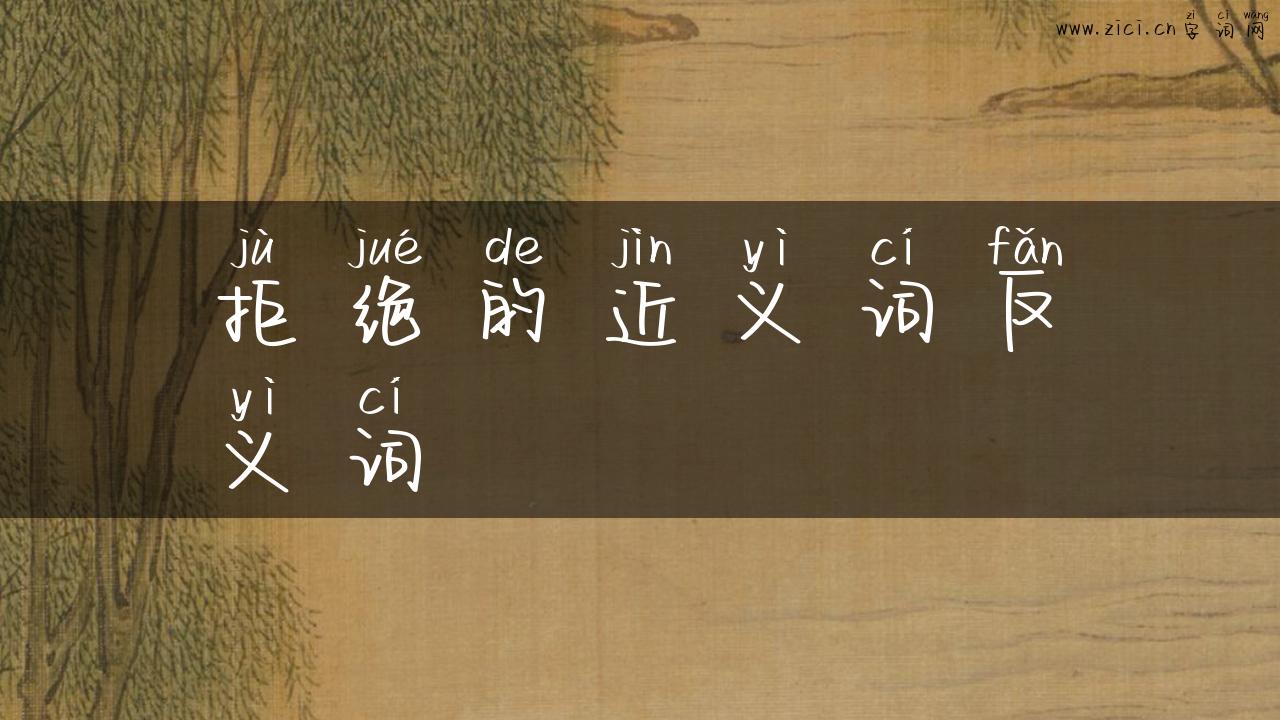 zì cí wǎng
www.zici.cn字词网
jù jué de jìn yì cí fǎn
拒绝的近义词反
yì cí
义词